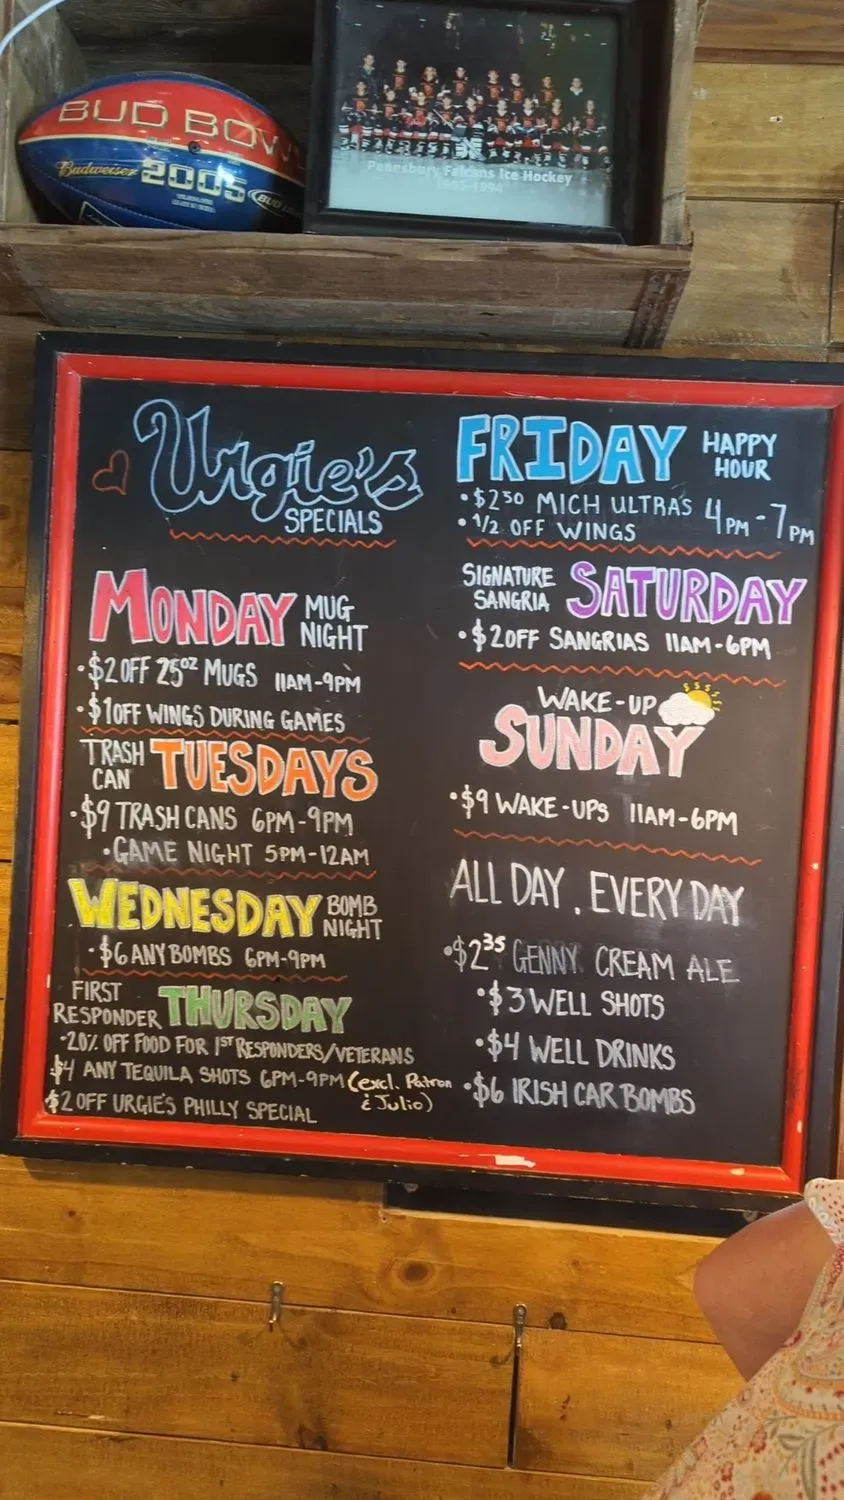 BUD BOWL
Budweiser
2005
BUD LIGHT
Pennsbury Falcons Ice Hockey
Urgie's
SPECIALS
MONDAY MUG NIGHT
• $2 OFF 25oz MUGS 11AM-9PM
• $1 OFF WINGS DURING GAMES
TRASH CAN TUESDAYS
• $9 TRASH CANS 6PM-9PM
• GAME NIGHT 5PM-12AM
WEDNESDAY BOMB NIGHT
• $6 ANY BOMBS 6PM-9PM
FIRST RESPONDER THURSDAY
• 20% OFF FOOD FOR 1ST RESPONDERS/VETERANS
$4 ANY TEQUILA SHOTS 6PM-9PM (excl. Patron
& Julio)
$2 OFF URGIE'S PHILLY SPECIAL
FRIDAY HAPPY HOUR
• $2.50 MICH ULTRAS 4PM-7PM
• 1/2 OFF WINGS
SIGNATURE SANGRIA SATURDAY
• $2 OFF SANGRIAS 11AM-6PM
WAKE-UP
SUNDAY
• $9 WAKE-UPS 11AM-6PM
ALL DAY, EVERY DAY
• $2.35 GENNY CREAM ALE
• $3 WELL SHOTS
• $4 WELL DRINKS
• $6 IRISH CAR BOMBS